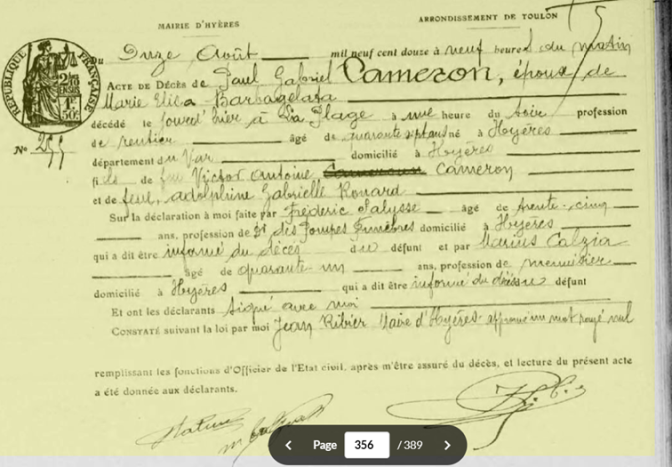 MAIRIE D'HYÈRES
ARRONDISSEMENT DE TOULON
RÉPUBLIQUE FRANÇAISE
Du Onze Août mil neuf cent douze à neuf heures du matin
ACTE DE DÉCÈS de Paul Gabriel Cameron, époux de
Marie Elisa Barbagelata
décédé le jourd'hier à La Plage à une heure du soir profession
de rentier âgé de quarante sept ans né à Hyères
département du Var domicilié à Hyères
fils de feu Victor Antoine Cameron
et de feue, adolphine Gabrielle Rouard
Sur la déclaration à moi faite par Frédéric Salysse âgé de trente-cinq
ans, profession de des Pompes Funèbres domicilié à Hyères
qui a dit être informé du décès du défunt et par Marius Calzia
âgé de quarante un ans, profession de menuisier
domicilié à Hyères qui a dit être informé du décès du défunt
Et ont les déclarants signé avec moi
CONSTATÉ suivant la loi par moi Jean Ribier Maire d'Hyères approuvé un mot rayé nul
remplissant les fonctions d'Officier de l'Etat civil, après m'être assuré du décès, et lecture du présent acte
a été donnée aux déclarants.
Page 356 / 389